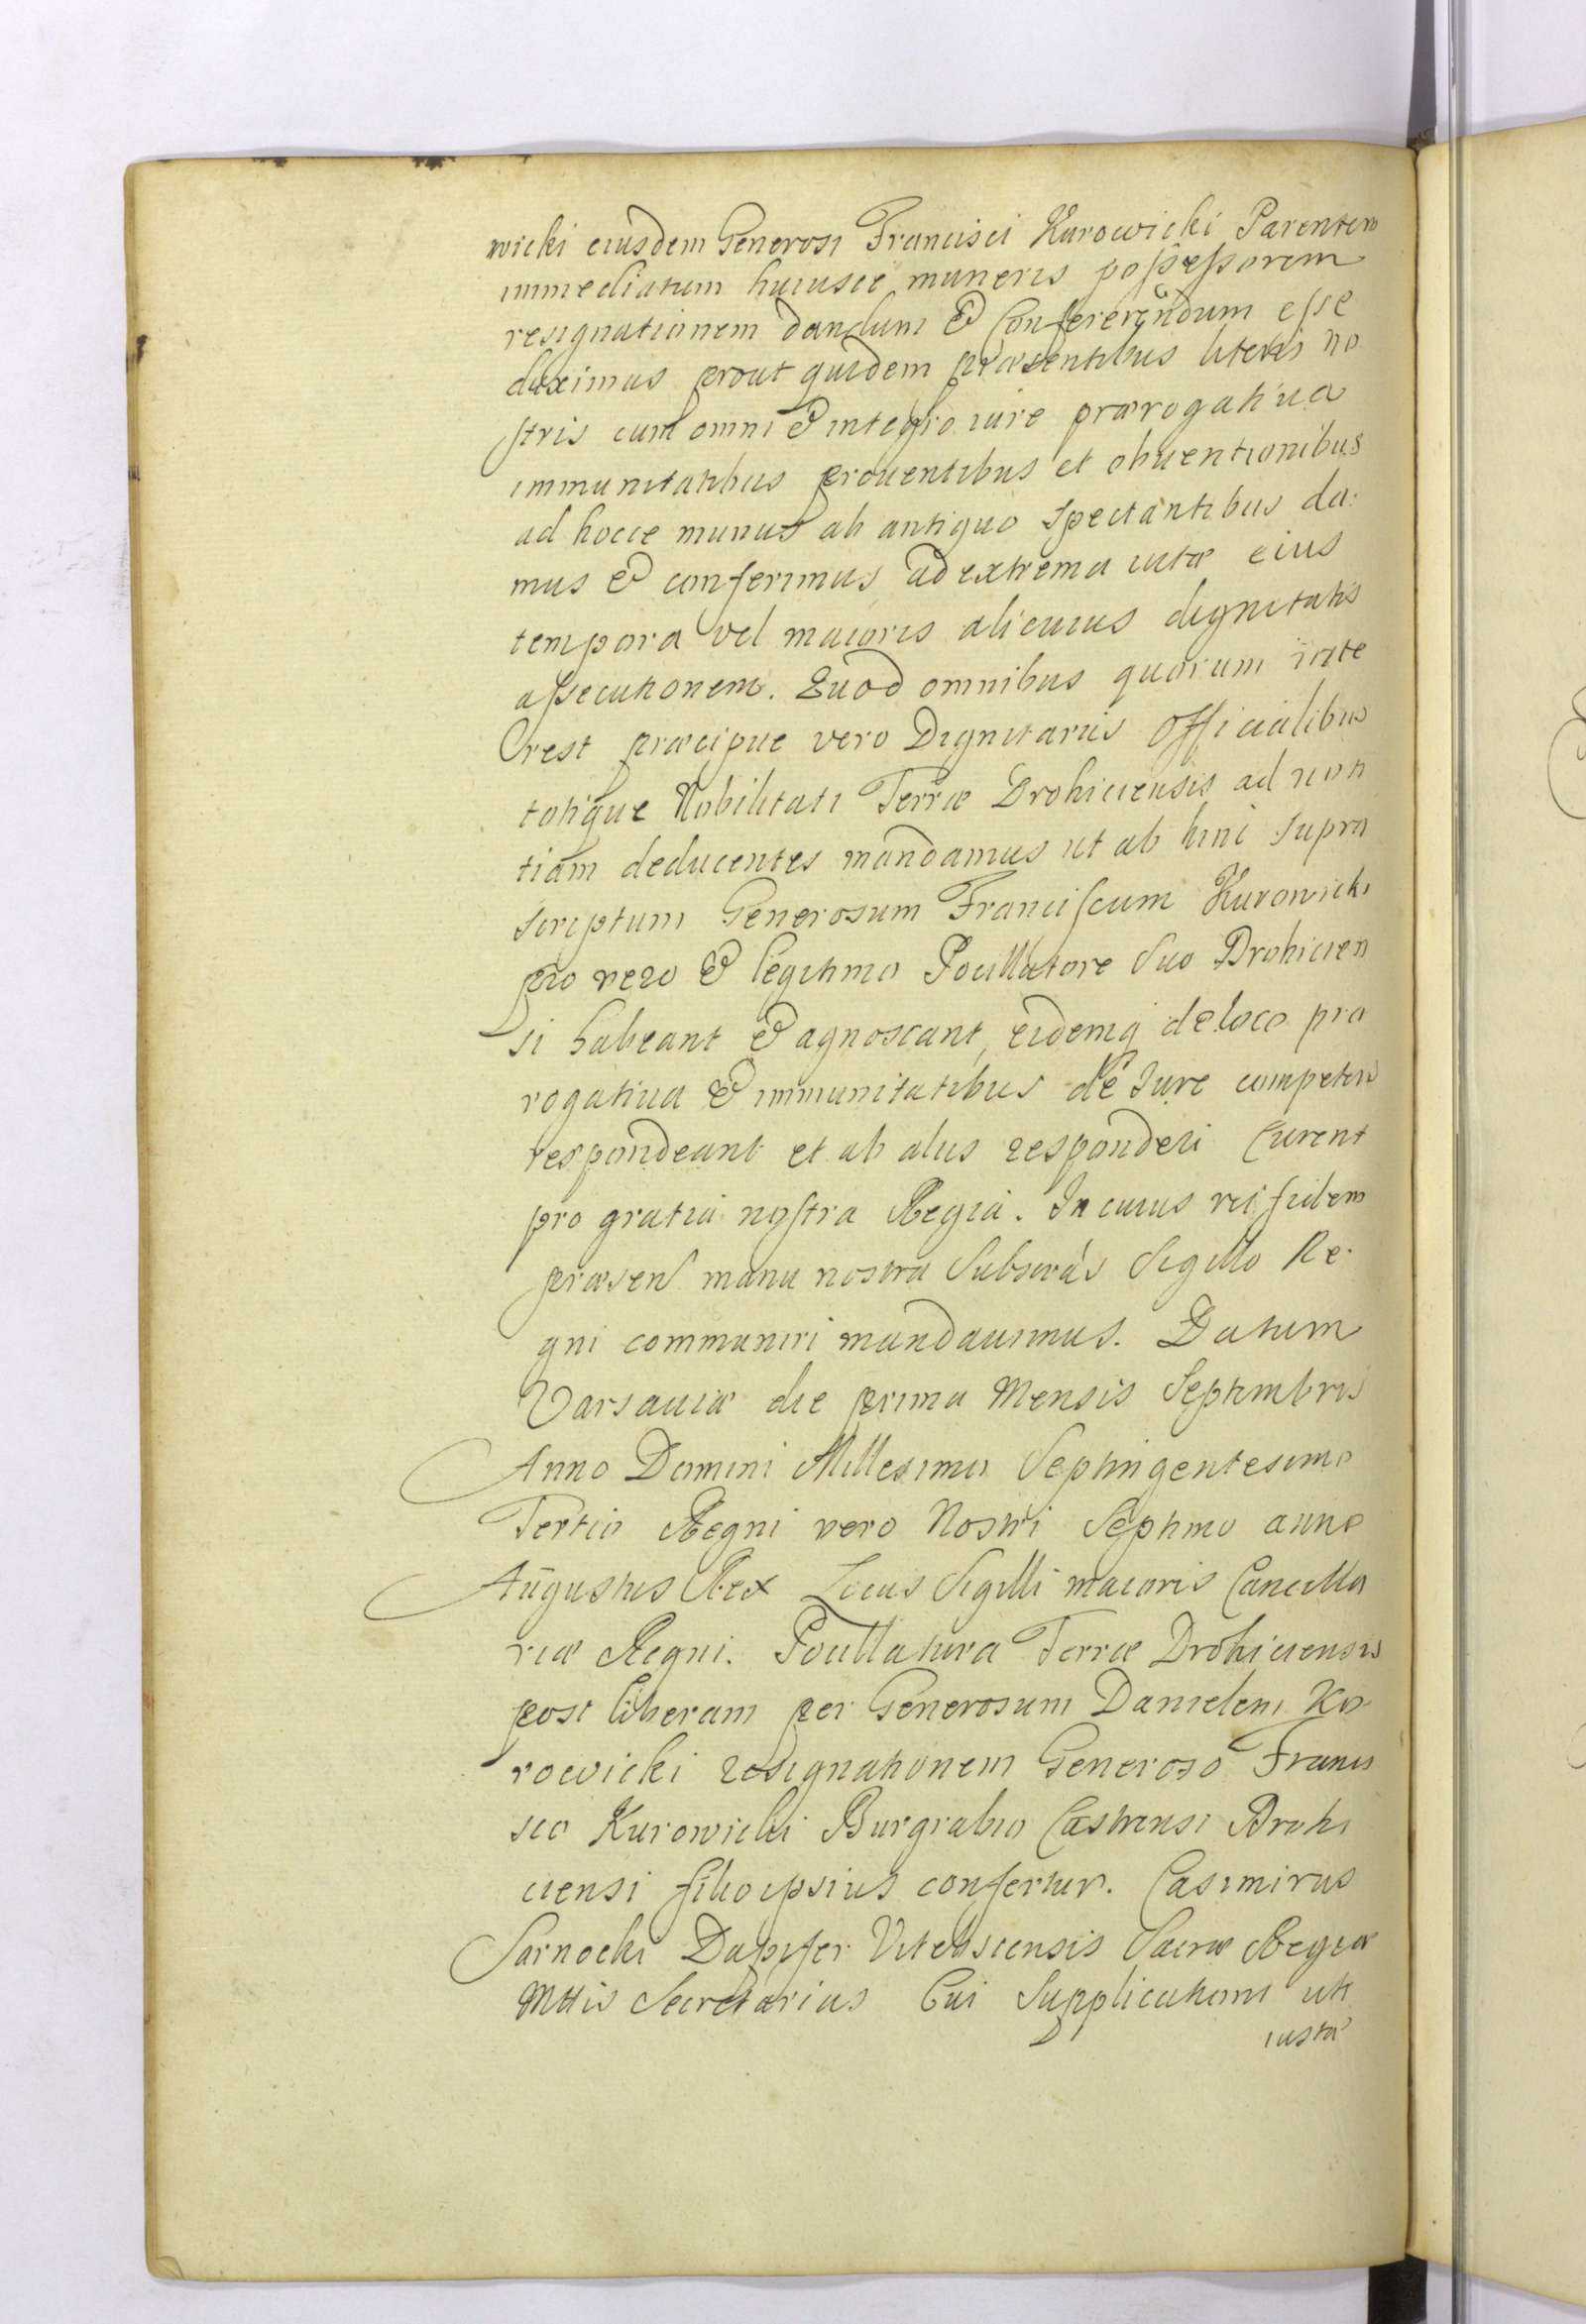 wicki eiusdem Generosi Francisci Kurowicki Parentem
immediatum huiusce muneris possessorem
resignationem dandum & Conferendum esse
duximus prout quidem præsentibus literis no
stris cum omni & integro iure prærogatiua
immunitatibus prouentibus et obuentionibus
ad hocce munus ab antiquo Spectantibus da:
mus & conferimus ad extrema uitæ eius
tempora vel maioris alicuius dignitatis
assecutionem. Quod omnibus quorum inte
rest præcipue vero Dignitariis Officialibus
totique Nobilitati Terræ Drohiciensis ad noti
tiam deducentes mandamus ut ab hinc supra
scriptum Generosum Franciscum Kurowicki
pro vero & legitimo Pocillatore Suo Drohicien
si habeant & agnoscant, eidemq de loco præ
rogatiua & immunitatibus de Iure competen
respondeant et ab aliis responderi Curent
pro gratia nostra Regia. In cuius rei fidem
præsen manu nostra Subscrās Sigillo Re.
gni communiri mandauimus. Datum
Varsauiæ die prima Mensis Septembris
Anno Domini Millesimo Septingentesimo
Tertio Regni vero Nostri Septimo anno
Augustus Rex Locus Sigilli maioris Cancella
riæ Regni. Pocillatura Terræ Drohiciensis
post liberam per Generosum Danielem Ku
rowicki resignationem Generoso Francis
sco Kurowicki Burgrabio Castrensi Drohi
ciensi filio ipsius confertur. Casimirus
Sarnocki Dapifer Vitebscensis Sacræ Regiæ
Mttis Secretarius Cui Supplicationi uti
iustæ